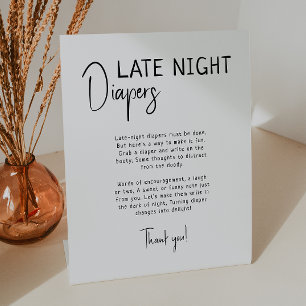 LATE NIGHT
Diapers
Late-night diapers must be done,
But here's a way to make it fun,
Grab a diaper and write on the
booty, Some thoughts to distract
from the doody.
Words of encouragement, a laugh
or two, A sweet or funny note just
from you, Let's make them write in
the dark of night, Turning diaper
changes into delight!
Thank you!